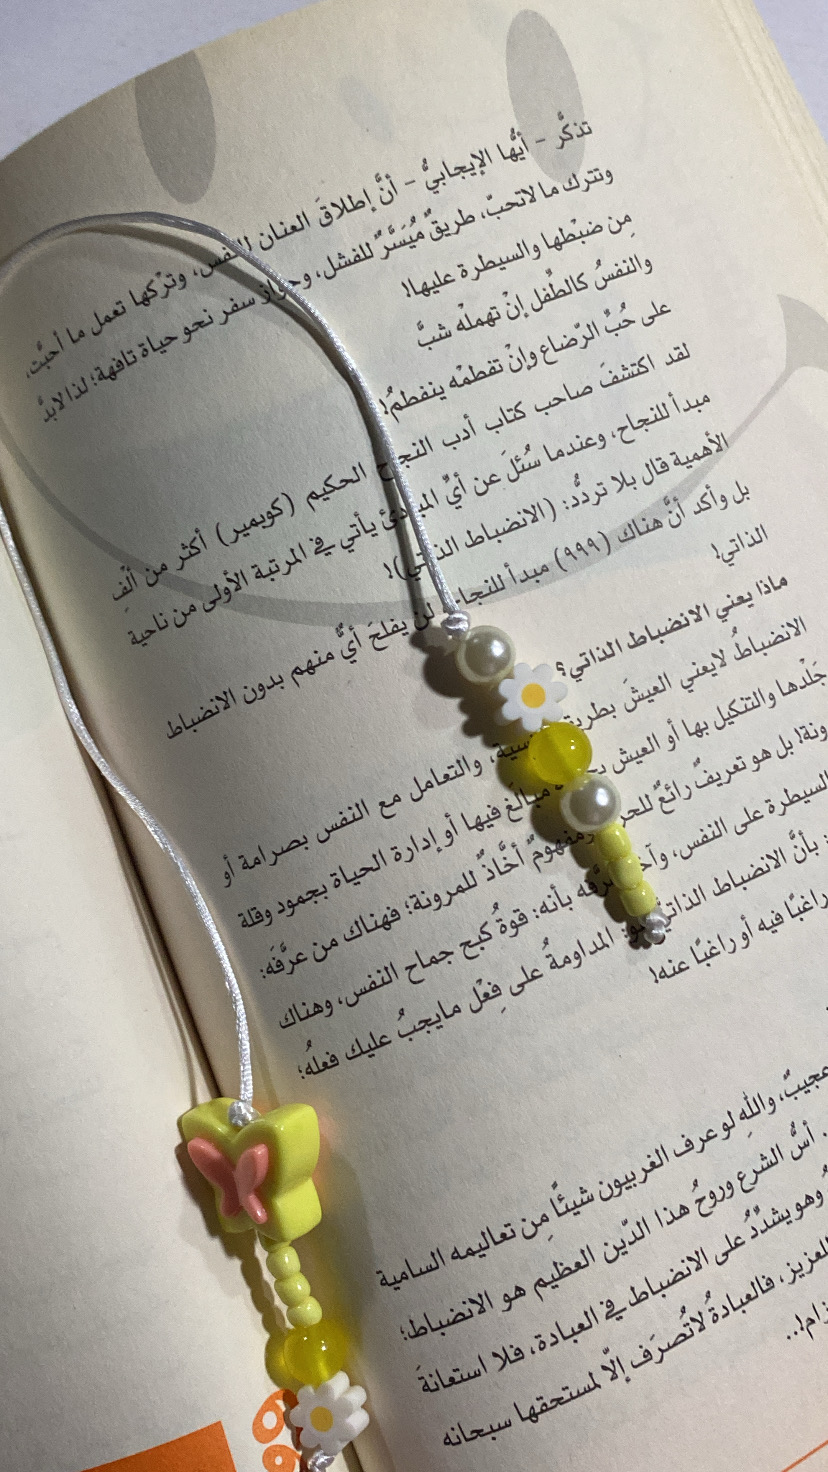 تذكَّر – أيُّها الإيجابيُّ – أنَّ إطلاقَ العنان للنفس، وترْكها تعمل ما أحبَّت،
وتترك ما لاتحبّ، طريقٌ مُيَسَّرٌ للفشل، وجواز سفر نحو حياة تافهة؛ لذا لابدَّ
مِن ضبْطها والسيطرة عليها!
والنفسُ كالطِّفل إنْ تهملْه شبَّ
على حُبِّ الرّضاع وإنْ تفطمْه ينفطمُ!
لقد اكتشفَ صاحب كتاب أدب النجاح الحكيم (كوبمير) أكثر من ألْفِ
مبدأ للنجاح، وعندما سُئلَ عن أيِّ المبادئ يأتي في المرتبة الأولى من ناحية
الأهمية قال بلا تردُّد: (الانضباط الذاتي)!
بل وأكد أنَّ هناك (٩٩٩) مبدأ للنجاح لن يفلحَ أيٌّ منهم بدون الانضباط
الذاتي!
ماذا يعني الانضباط الذاتي؟
الانضباطُ لايعني العيشَ بطريقة قاسية، والتعامل مع النفس بصرامة أو
جَلْدها والتنكيل بها أو العيش مبالَغ فيها أو إدارة الحياة بجمود وقلة
بل هو تعريفٌ رائعٌ ومفهومٌ أخَّاذٌ للمرونة؛ فهناك من عرَّفَه:
السيطرة على النفس، عرَّفه بأنه: قوةُ كبح جماح النفس، وهناك
بأنَّ الانضباط الذاتي هو: المداومةُ على فِعْل مايجبُ عليك فعلُه؛
راغبًا فيه أو راغبًا عنه!
عجيبٌ، واللهِ لو عرف الغربيون شيئًا مِن تعاليمه السامية
أسُّ الشرع وروحُ هذا الدّين العظيم هو الانضباط؛
وهو يشدِّدُ على الانضباط في العبادة، فلا استعانةَ
العزيز، فالعبادةُ لاتُصرَف إلّا لمستحقها سبحانه